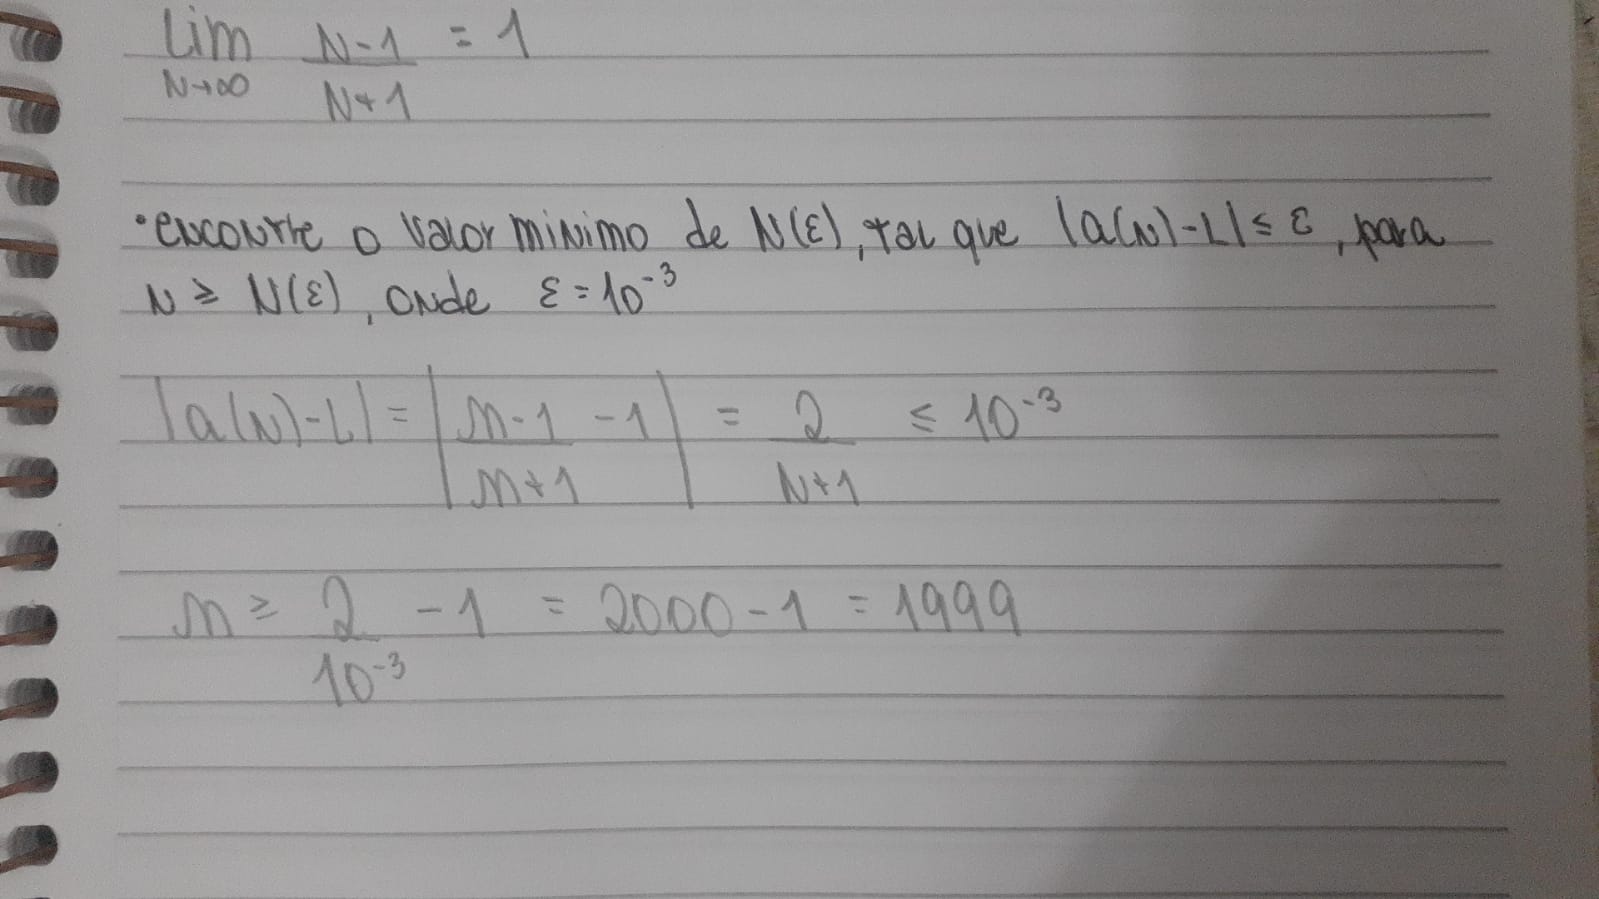 Lim N-1 = 1
N→∞ N+1
• encontre o valor minimo de N(ε), tal que |a(N)-L| ≤ ε, para
N ≥ N(ε), onde ε = 10⁻³
|a(N)-L| = | n-1 -1 | = 2 ≤ 10⁻³
n+1 N+1
n ≥ 2 -1 = 2000-1 = 1999
10⁻³